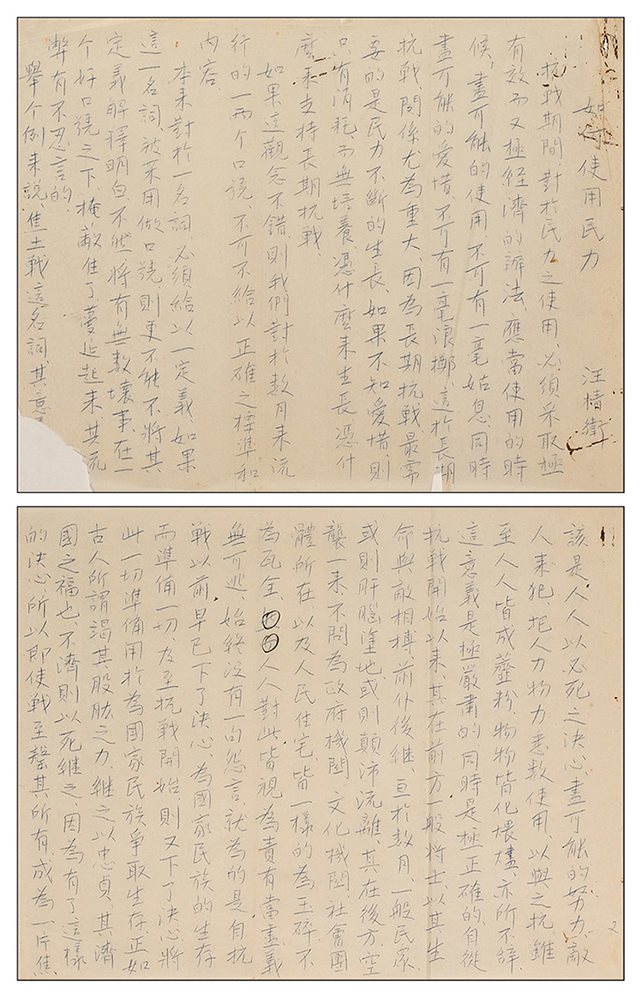 如何使用民力
汪精衛
抗戰期間、對於民力之使用、必須采取極
有效而又極經濟的辦法、應當使用的時
候、盡可能的使用、不可有一毫姑息、同時
盡可能的愛惜、不可有一毫浪擲、這於長期
抗戰、関係尤為重大、因為長期抗戰最需
要的是民力不斷的生長、如果不知愛惜、則
只有消耗、而無培養、憑什麽来生長、憑什
麽来支持長期抗戰、
如果這觀念不錯、則我們對於数月来流
行的一两个口號、不可不給以正確之標準和
內容
本来對於一名詞必須給以一定義、如果
這一名詞、被采用做口號、則更不能不將其
定義解釋明白、不然、將有無数壞事、在一
个好口號之下、掩蔽住了蔓延起来、其流
弊有不忍言的、
舉个例来說、焦土戰這名詞、其意
該是、人人以必死之決心、盡可能的努力、敵
人来犯、把人力物力悉数使用、以與之抗、雖
至人人皆成虀粉、物物皆化煨燼、亦所不辞、
這意義是極嚴肅的、同時是極正確的、自從
抗戰開始以来、其在前方一般將士、以其生
命與敵相搏、前仆後継、亘於数月、一般民衆
或則肝腦塗地、或則顛沛流離、其在後方、空
襲一来、不問為政府機関、文化機関、社會團
體所在、以及人民住宅、皆一樣的為玉碎不
為瓦全、人人對此皆視為責有當盡義
無可逃、始終沒有一句怨言、就為的是自抗
戰以前、早已下了決心、為國家民族的生存
而準備一切、及至抗戰開始、則又下了決心將
此一切準備用於為國家民族爭取生存、正如
古人所謂竭其股肱之力、継之以忠貞、其濟
國之福也、不濟則以死継之、因為有了這樣
的決心、所以即使戰至罄其所有、成為一片焦
2